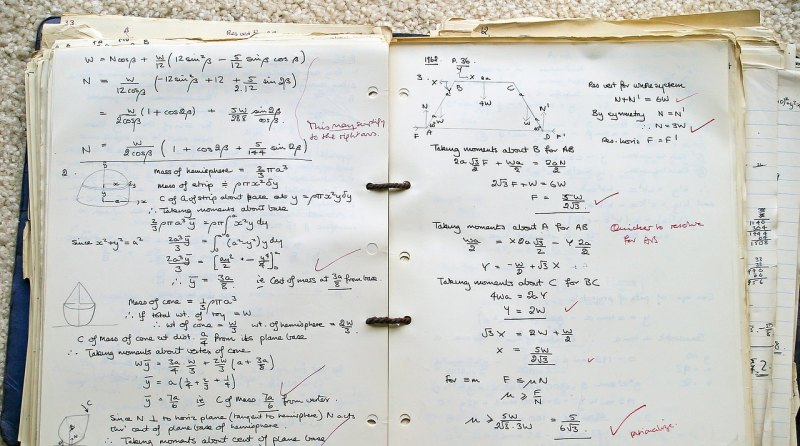 33
W = Ncosβ + W/12 (12sin²β − 5/12 sinβ cosβ)
N = W/12cosβ (−12sin²β + 12 + 5/2.12 sin2β)
= W/2cosβ (1 + cos2β) + 5W/288 sin2β/cosβ.
This may simplify to the right ans.
N = W/2cosβ (1 + cos2β + 5/144 sin2β)
2.
Mass of hemisphere = 2/3 πρa³
Mass of strip = ρπx²δy
C of G of strip about base at y = ρπx²yδy
∴ Taking moments about base
2/3 ρπa³ȳ = ρπ∫x²y dy
since x²+y² = a²
2a³ȳ/3 = ∫(a²−y²)y dy
2a³ȳ/3 = [ay²/2 − y⁴/4]
∴ ȳ = 3a/8 ie Cent of mass at 3a/8 from base.
Mass of cone = 1/3 ρπa³
∴ If total wt. of toy = W
∴ wt of cone = W/3 wt. of hemisphere = 2W/3
C of Mass of cone at dist. a/4 from its plane base
∴ Taking moments about vertex of cone
Wȳ = 3a/4 W/3 + 2W/3 (a + 3a/8)
ȳ = a(1/4 + 2/3 + 1/4)
ȳ = 7a/6 ie C of mass 7a/6 from vertex.
Since N ⊥ to horiz plane (tangent to hemisphere) N acts
thro' cent of plane base of hemisphere.
∴ Taking moments about cent of plane base
C
1962 P.36
3.
X
X
2a
B
C
4W
N
N'
W
W
F
A
D
F'
Res vert for whole system
N+N' = 6W
By symmetry N = N'
∴ N = 3W
Res. horiz F = F'
Taking moments about B for AB
2a√3/2 F + Wa/2 = 2aN/2
2√3F + W = 6W
F = 5W/2√3
Taking moments about A for AB
Quicker to resolve for AB
Wa/2 = X2a√3/2 − Y2a/2
Y = −W/2 + √3X
Taking moments about C for BC
4Wa = 2aY
Y = 2W
√3X = 2W + W/2
X = 5W/2√3
for =m F ≤ μN
μ ≥ F/N
μ ≥ 5W/2√3.3W = 5/6√3
rationalize.